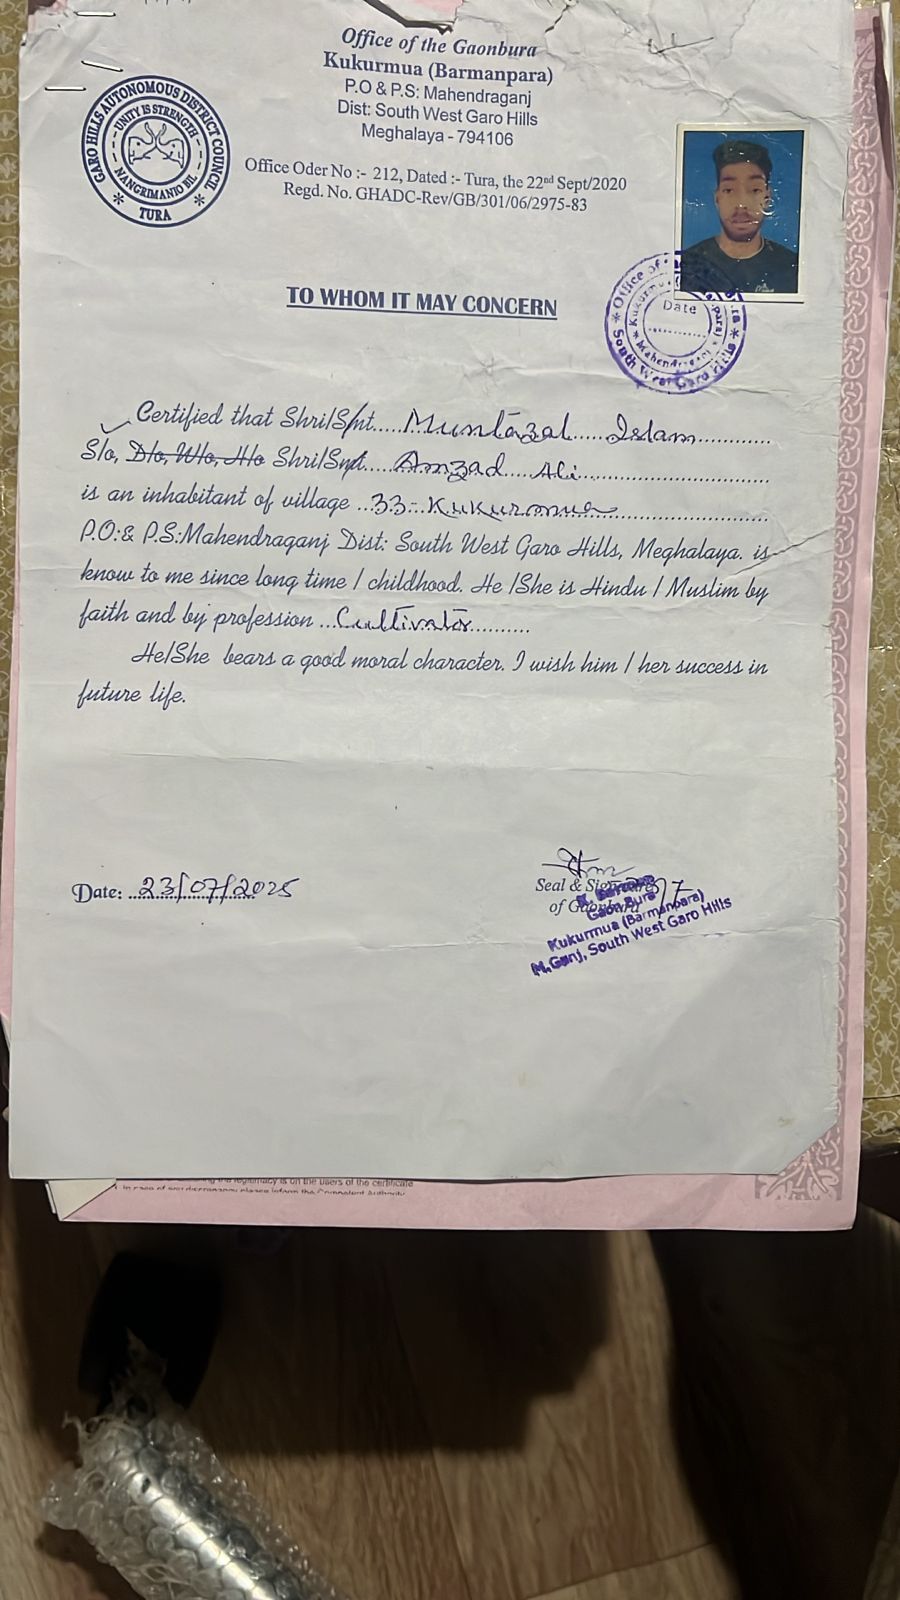 Office of the Gaonbura
Kukurmua (Barmanpara)
P.O & P.S: Mahendraganj
Dist: South West Garo Hills
Meghalaya - 794106
GARO HILLS AUTONOMOUS DISTRICT COUNCIL
UNITY IS STRENGTH
NANGRIMANIO BIL
* TURA *
Office Oder No :- 212, Dated :- Tura, the 22nd Sept/2020
Regd. No. GHADC-Rev/GB/301/06/2975-83
TO WHOM IT MAY CONCERN
Office of
Date
Mahendraganj
South West Garo Hills
Certified that Shri/Smt.....Muntazal.....Islam.............
S/o, D/o, W/o, H/o Shri/Smt.....Amzad....Ali.............
is an inhabitant of village ...33-Kukurmua.............
P.O:& P.S:Mahendraganj Dist: South West Garo Hills, Meghalaya. is
know to me since long time / childhood. He /She is Hindu / Muslim by
faith and by profession ...Cultivator..........
He/She bears a good moral character. I wish him / her success in
future life.
Date: 23/07/2025
Seal & Signature
of Gaonbura
Gaon Bura
Kukurmua (Barmanpara)
M.Ganj, South West Garo Hills
legitimacy is on the users of the certificate
In case of any discrepancy please inform the Competent Authority